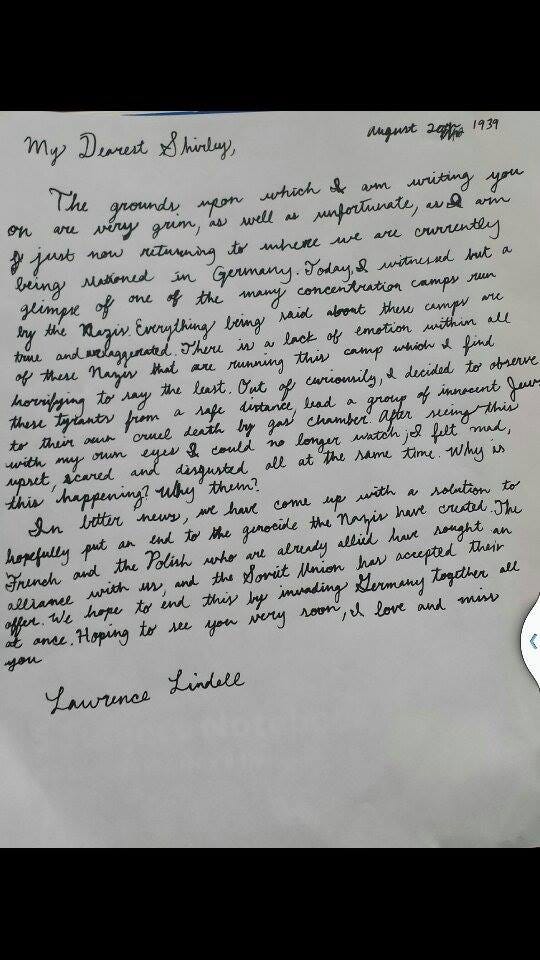 August 20th 1939
My Dearest Shirley,
The grounds upon which I am writing you
on are very grim, as well as unfortunate, as I am
just now returning to where we are currently
being stationed in Germany. Today, I witnessed but a
glimpse of one of the many concentration camps run
by the Nazis. Everything being said about these camps are
true and exaggerated. There is a lack of emotion within all
of these Nazis that are running this camp which I find
horrifying to say the least. Out of curiousily, I decided to observe
these tyrants from a safe distance, lead a group of innocent Jews
to their own cruel death by gas chamber. After seeing this
with my own eyes I could no longer watch; I felt mad,
upset, scared and disgusted all at the same time. Why is
this happening? Why them?
In better news, we have come up with a solution to
hopefully put an end to the genocide the Nazis have created. The
French and the Polish who are already allied have sought an
alliance with us, and the Soviet Union has accepted their
offer. We hope to end this by invading Germany together all
at once. Hoping to see you very soon, I love and miss
you
Lawrence Lindell